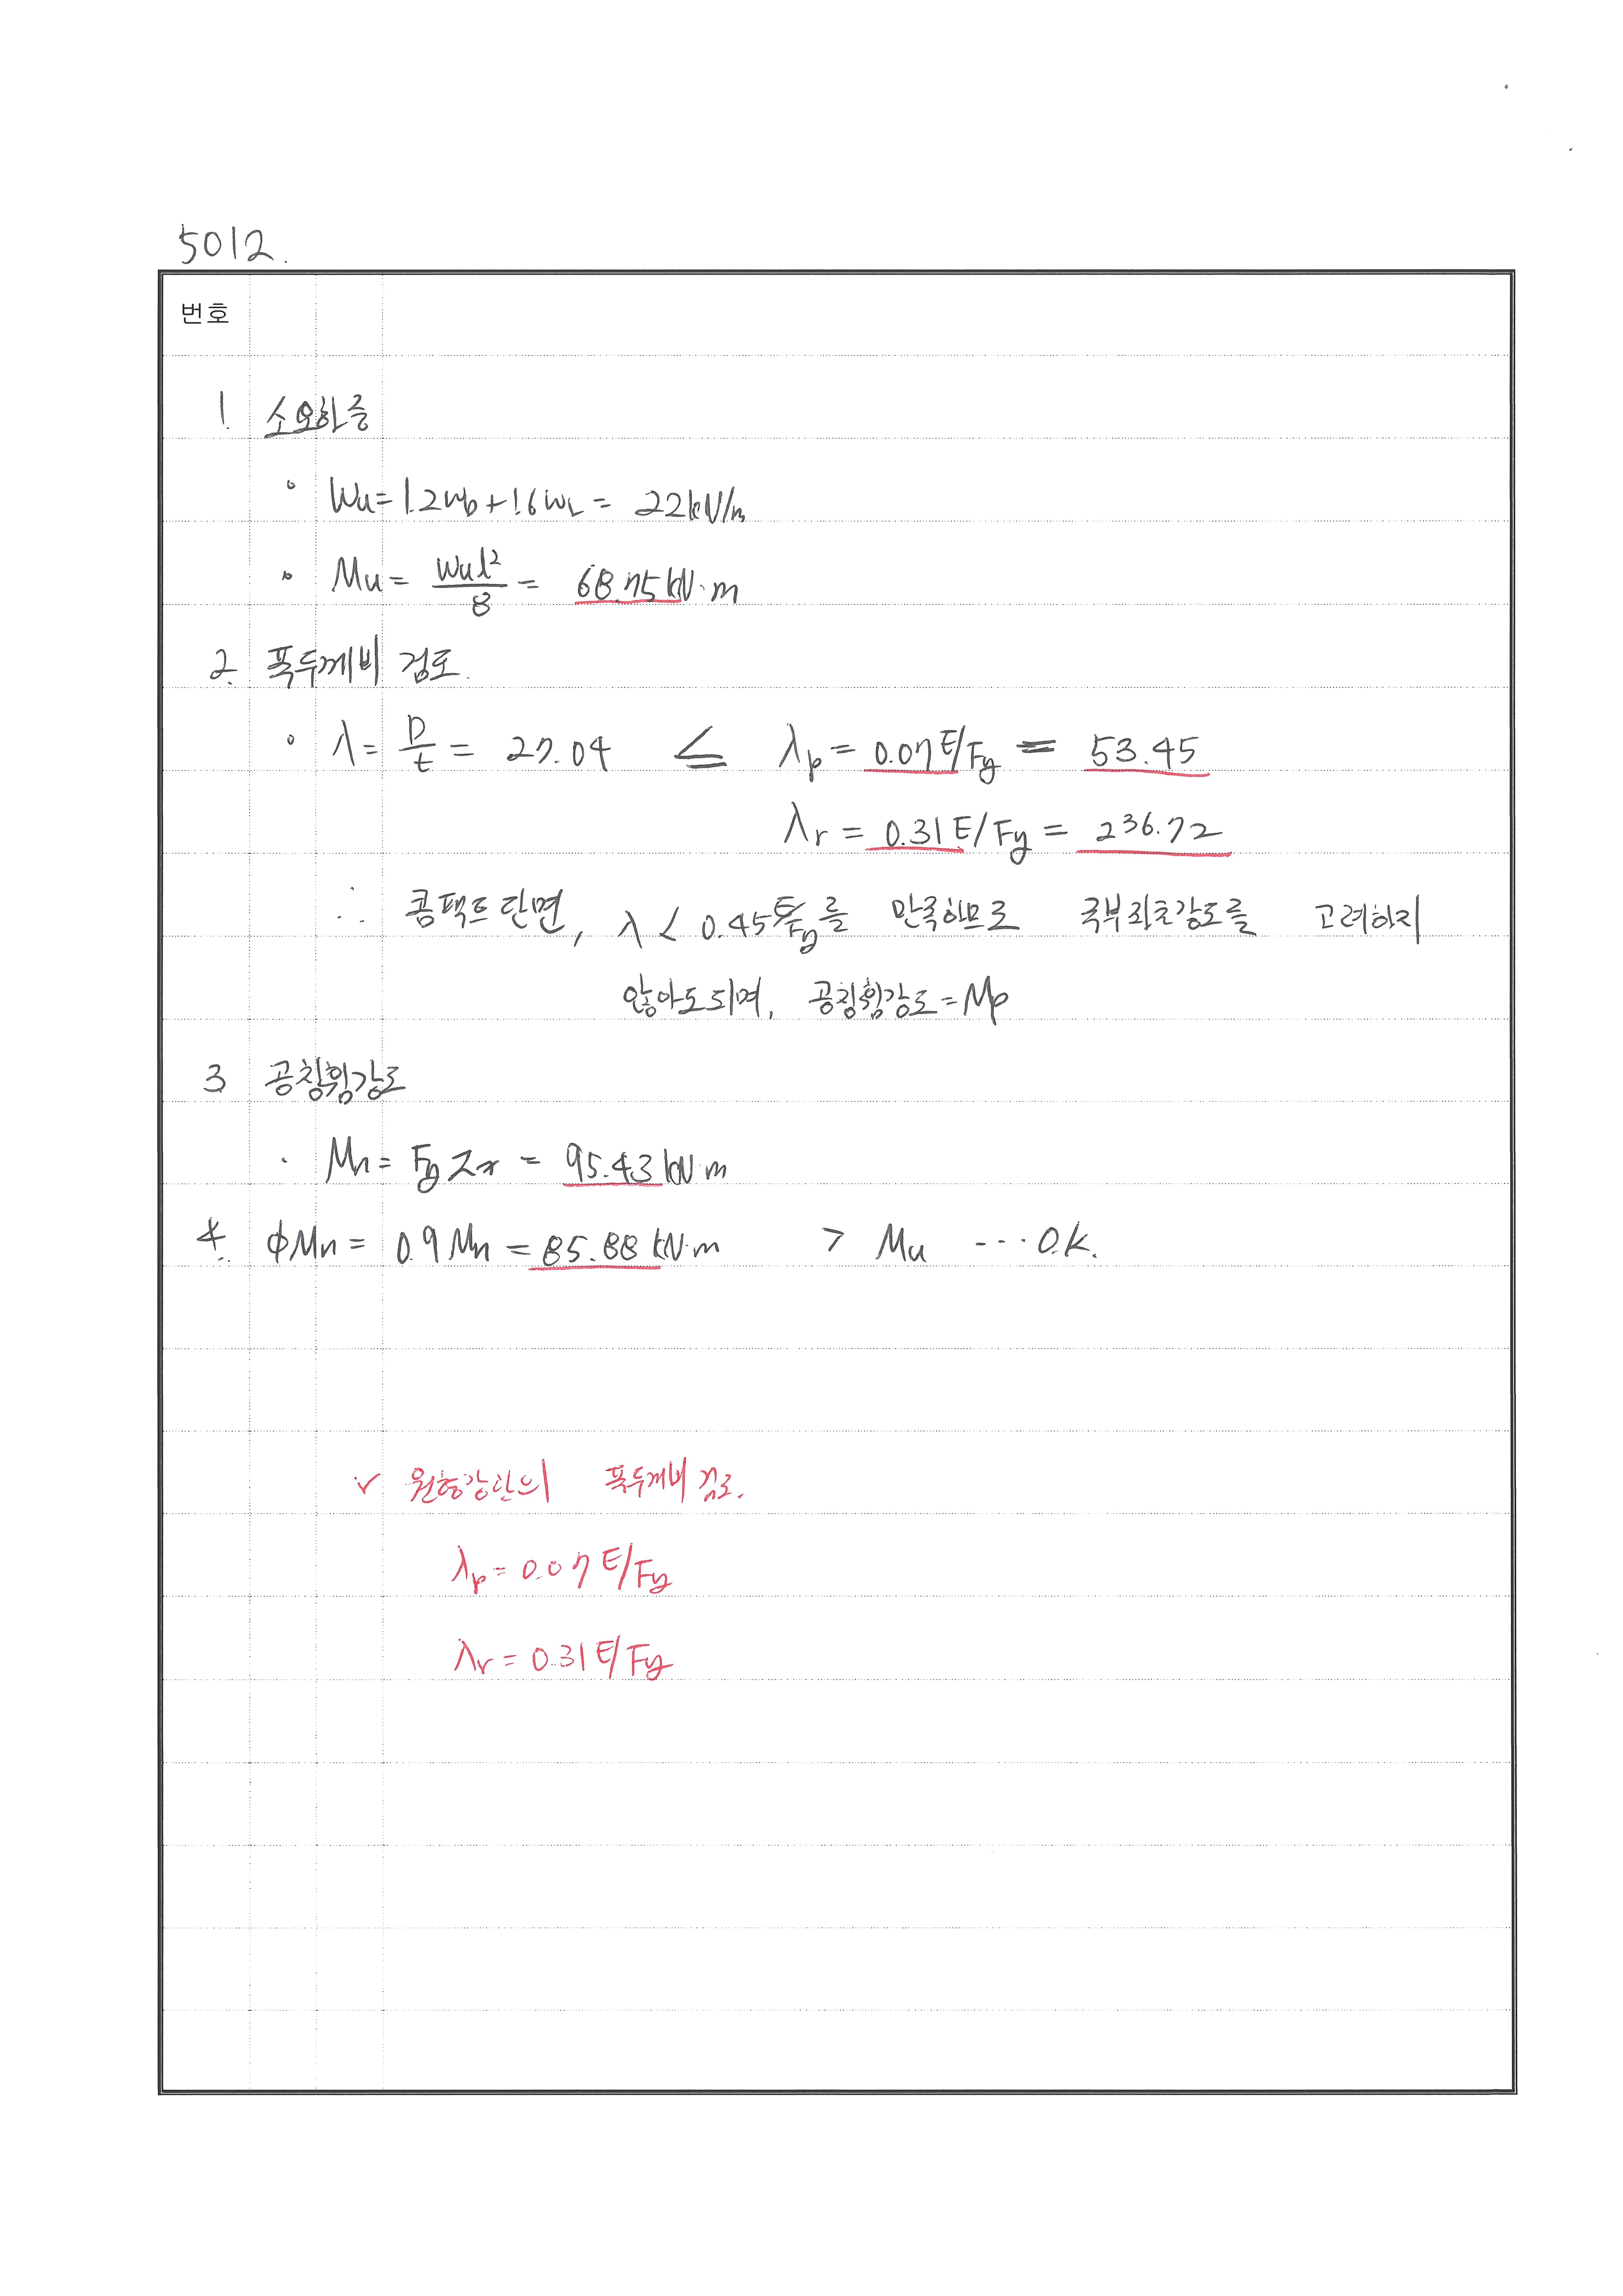 5012.
번호
1. 소요하중
• Wu = 1.2WD + 1.6WL = 22kN/m
• Mu = Wul²/8 = 68.75 kN·m
2. 폭두께비 검토.
• λ = D/t = 27.04 ≤ λp = 0.07E/Fy = 53.45
λr = 0.31E/Fy = 236.72
∴ 콤팩트 단면, λ < 0.45E/Fy를 만족하므로 국부좌굴강도를 고려하지
않아도되며, 공칭휨강도 = Mp
3 공칭휨강도
· Mn = FyZx = 95.43 kN·m
4. ϕMn = 0.9Mn = 85.88 kN·m > Mu ---O.K.
✓ 원형강관의 폭두께비 검토.
λp = 0.07 E/Fy
λr = 0.31 E/Fy